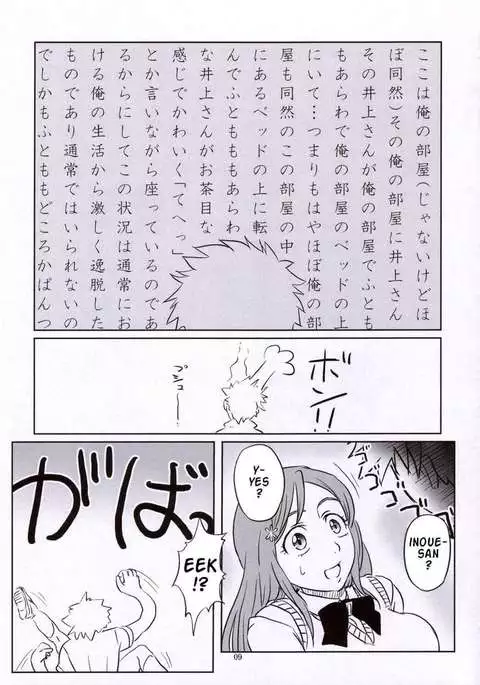 ここは俺の部屋(じゃないけどほ
ぼ同然)その俺の部屋に井上さん
その井上さんが俺の部屋でふとも
もあらわで俺の部屋のベッドの上
にいて…つまりもはやほぼ俺の部
屋も同然のこの部屋の中
にあるベッドの上に転
んでふとももあらわ
な井上さんがお茶目な
感じでかわいく「てへっ」
とか言いながら座っているのであ
るからにしてこの状況は通常にお
ける俺の生活から激しく逸脱した
ものであり通常ではいられないの
でしかもふとももどころかぱんつ
ボン!!
プシューー
ゴゴゴゴ
INOUE-
SAN
?
Y-
YES
?
がばっ
EEK
!?
09